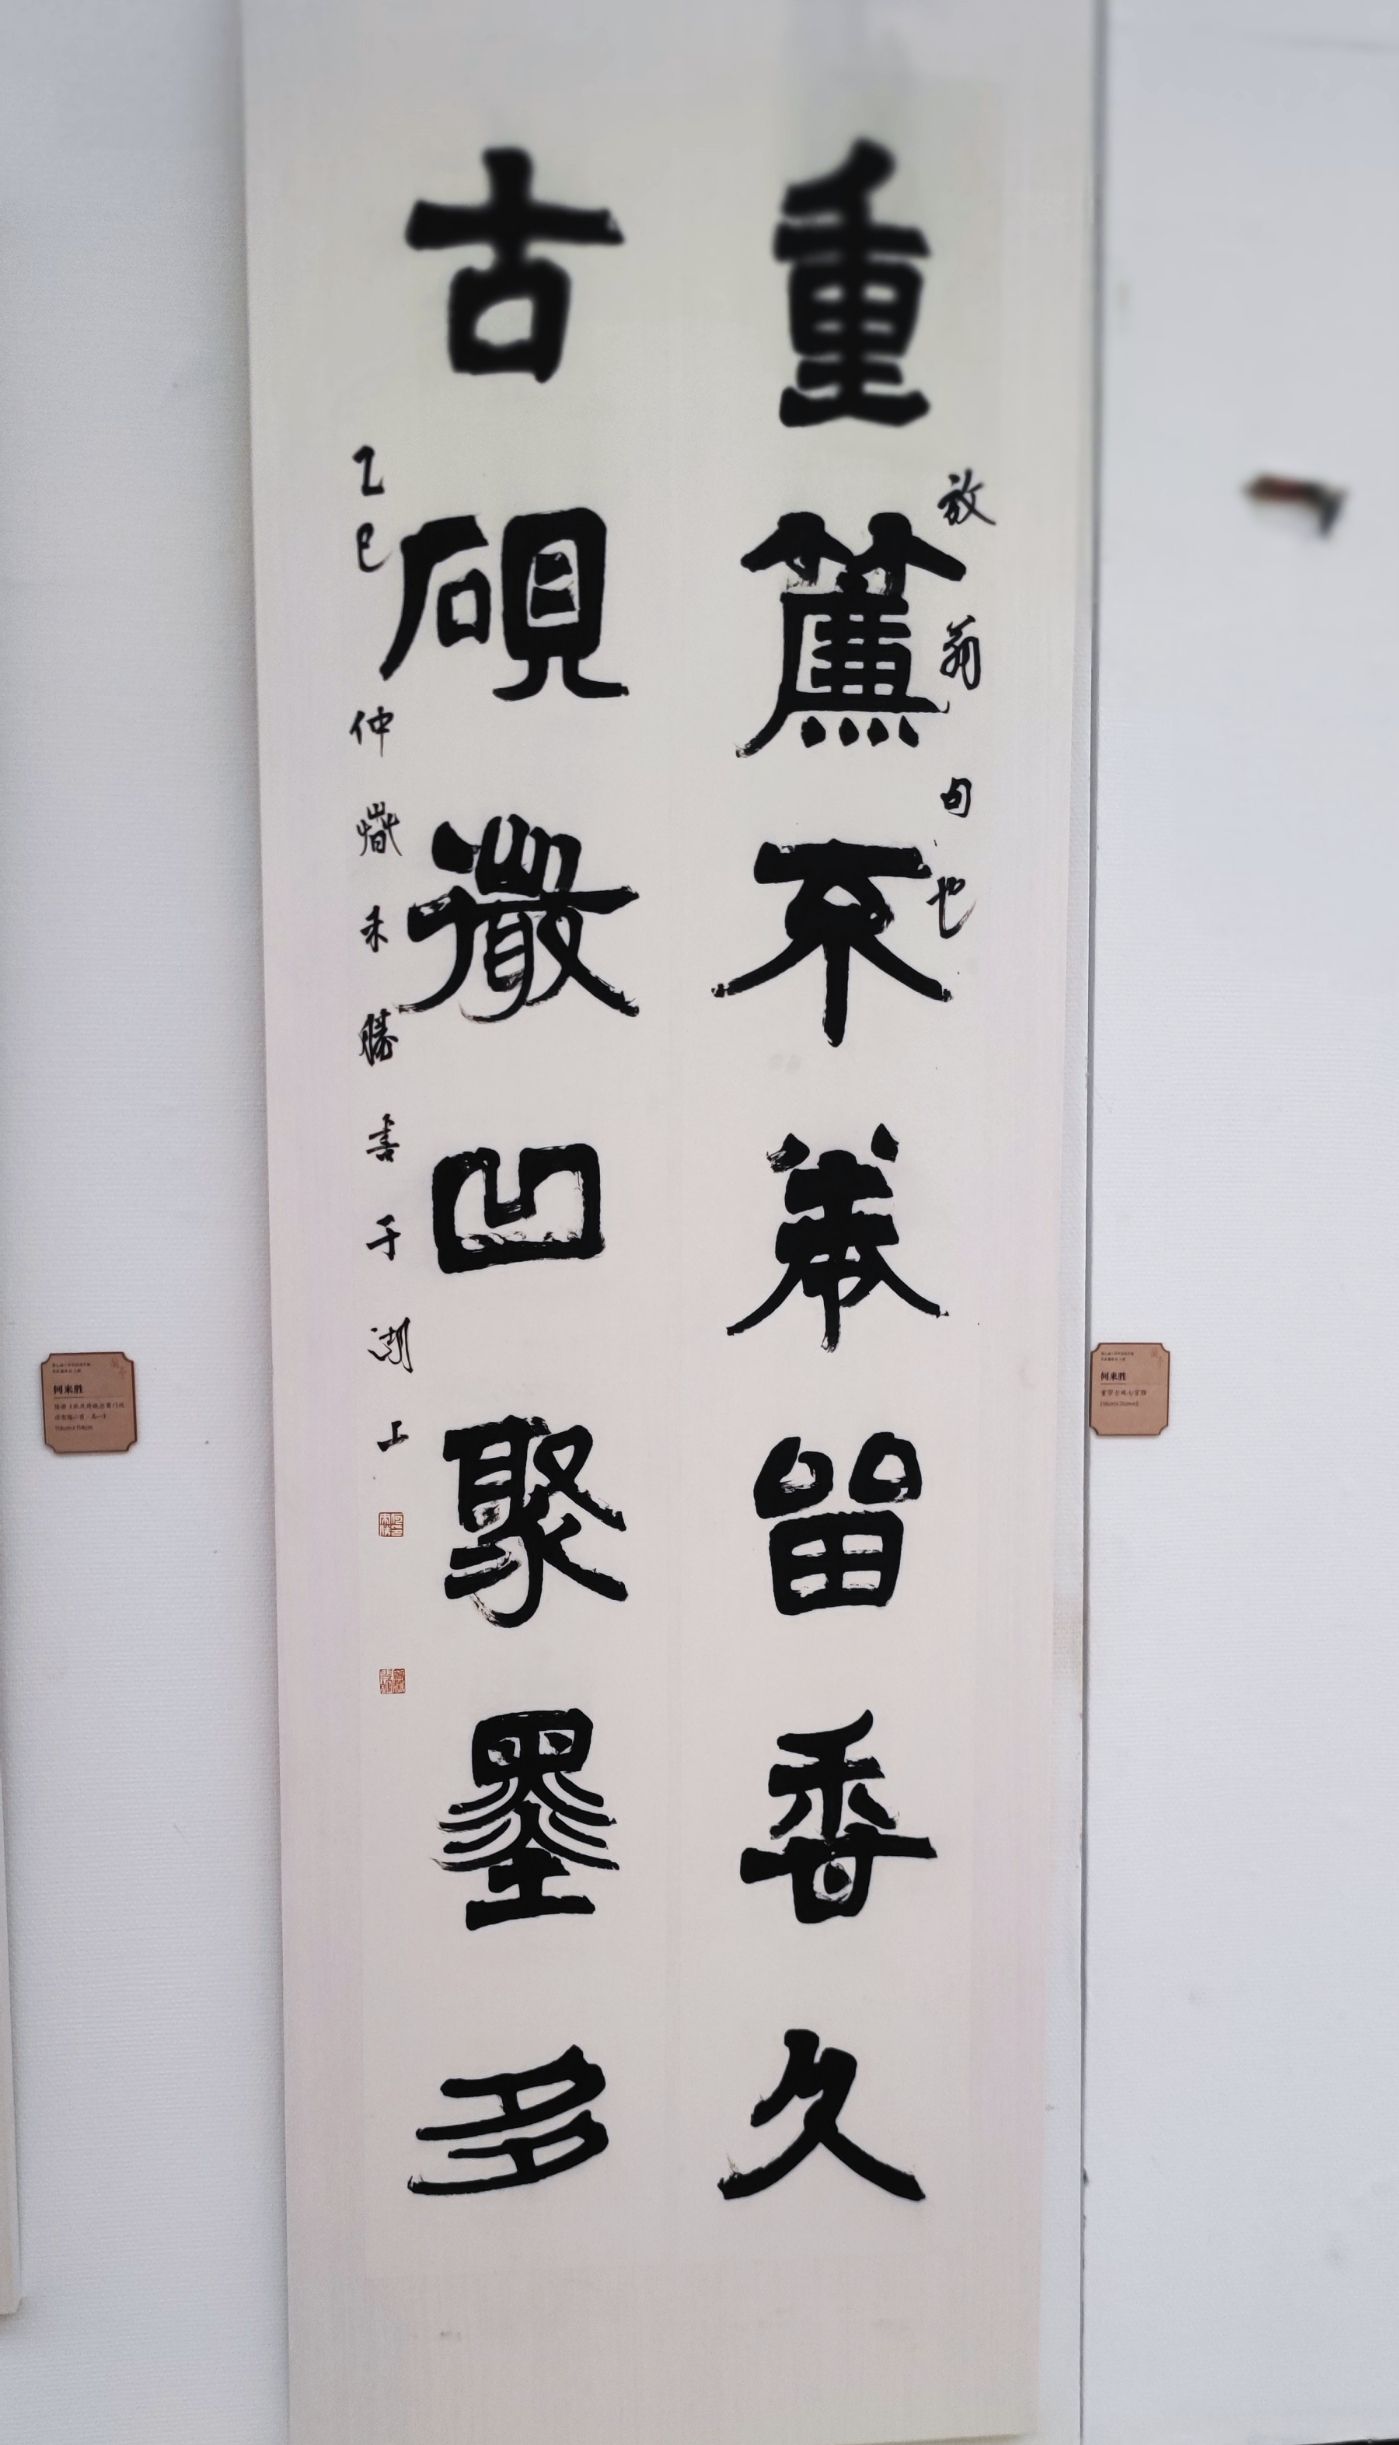 重簾不卷留香久
放翁句也
古硯微凹聚墨多
乙巳仲歲來勝書于湖上
何来胜
何来胜